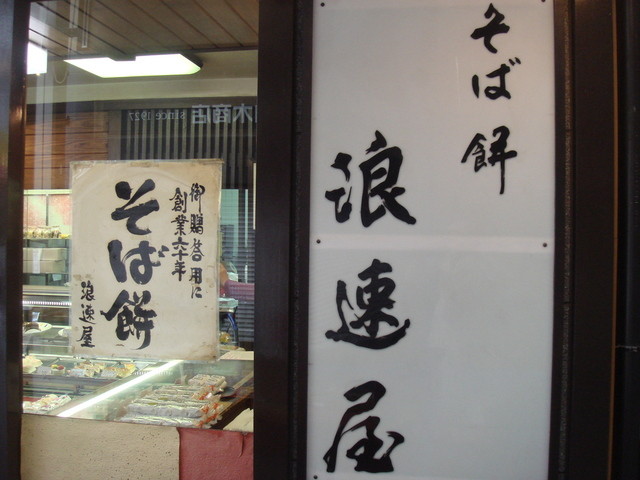 そば餅
浪速屋
御贈答用に
創業六十年
そば餅
浪速屋
木商店 since 1927